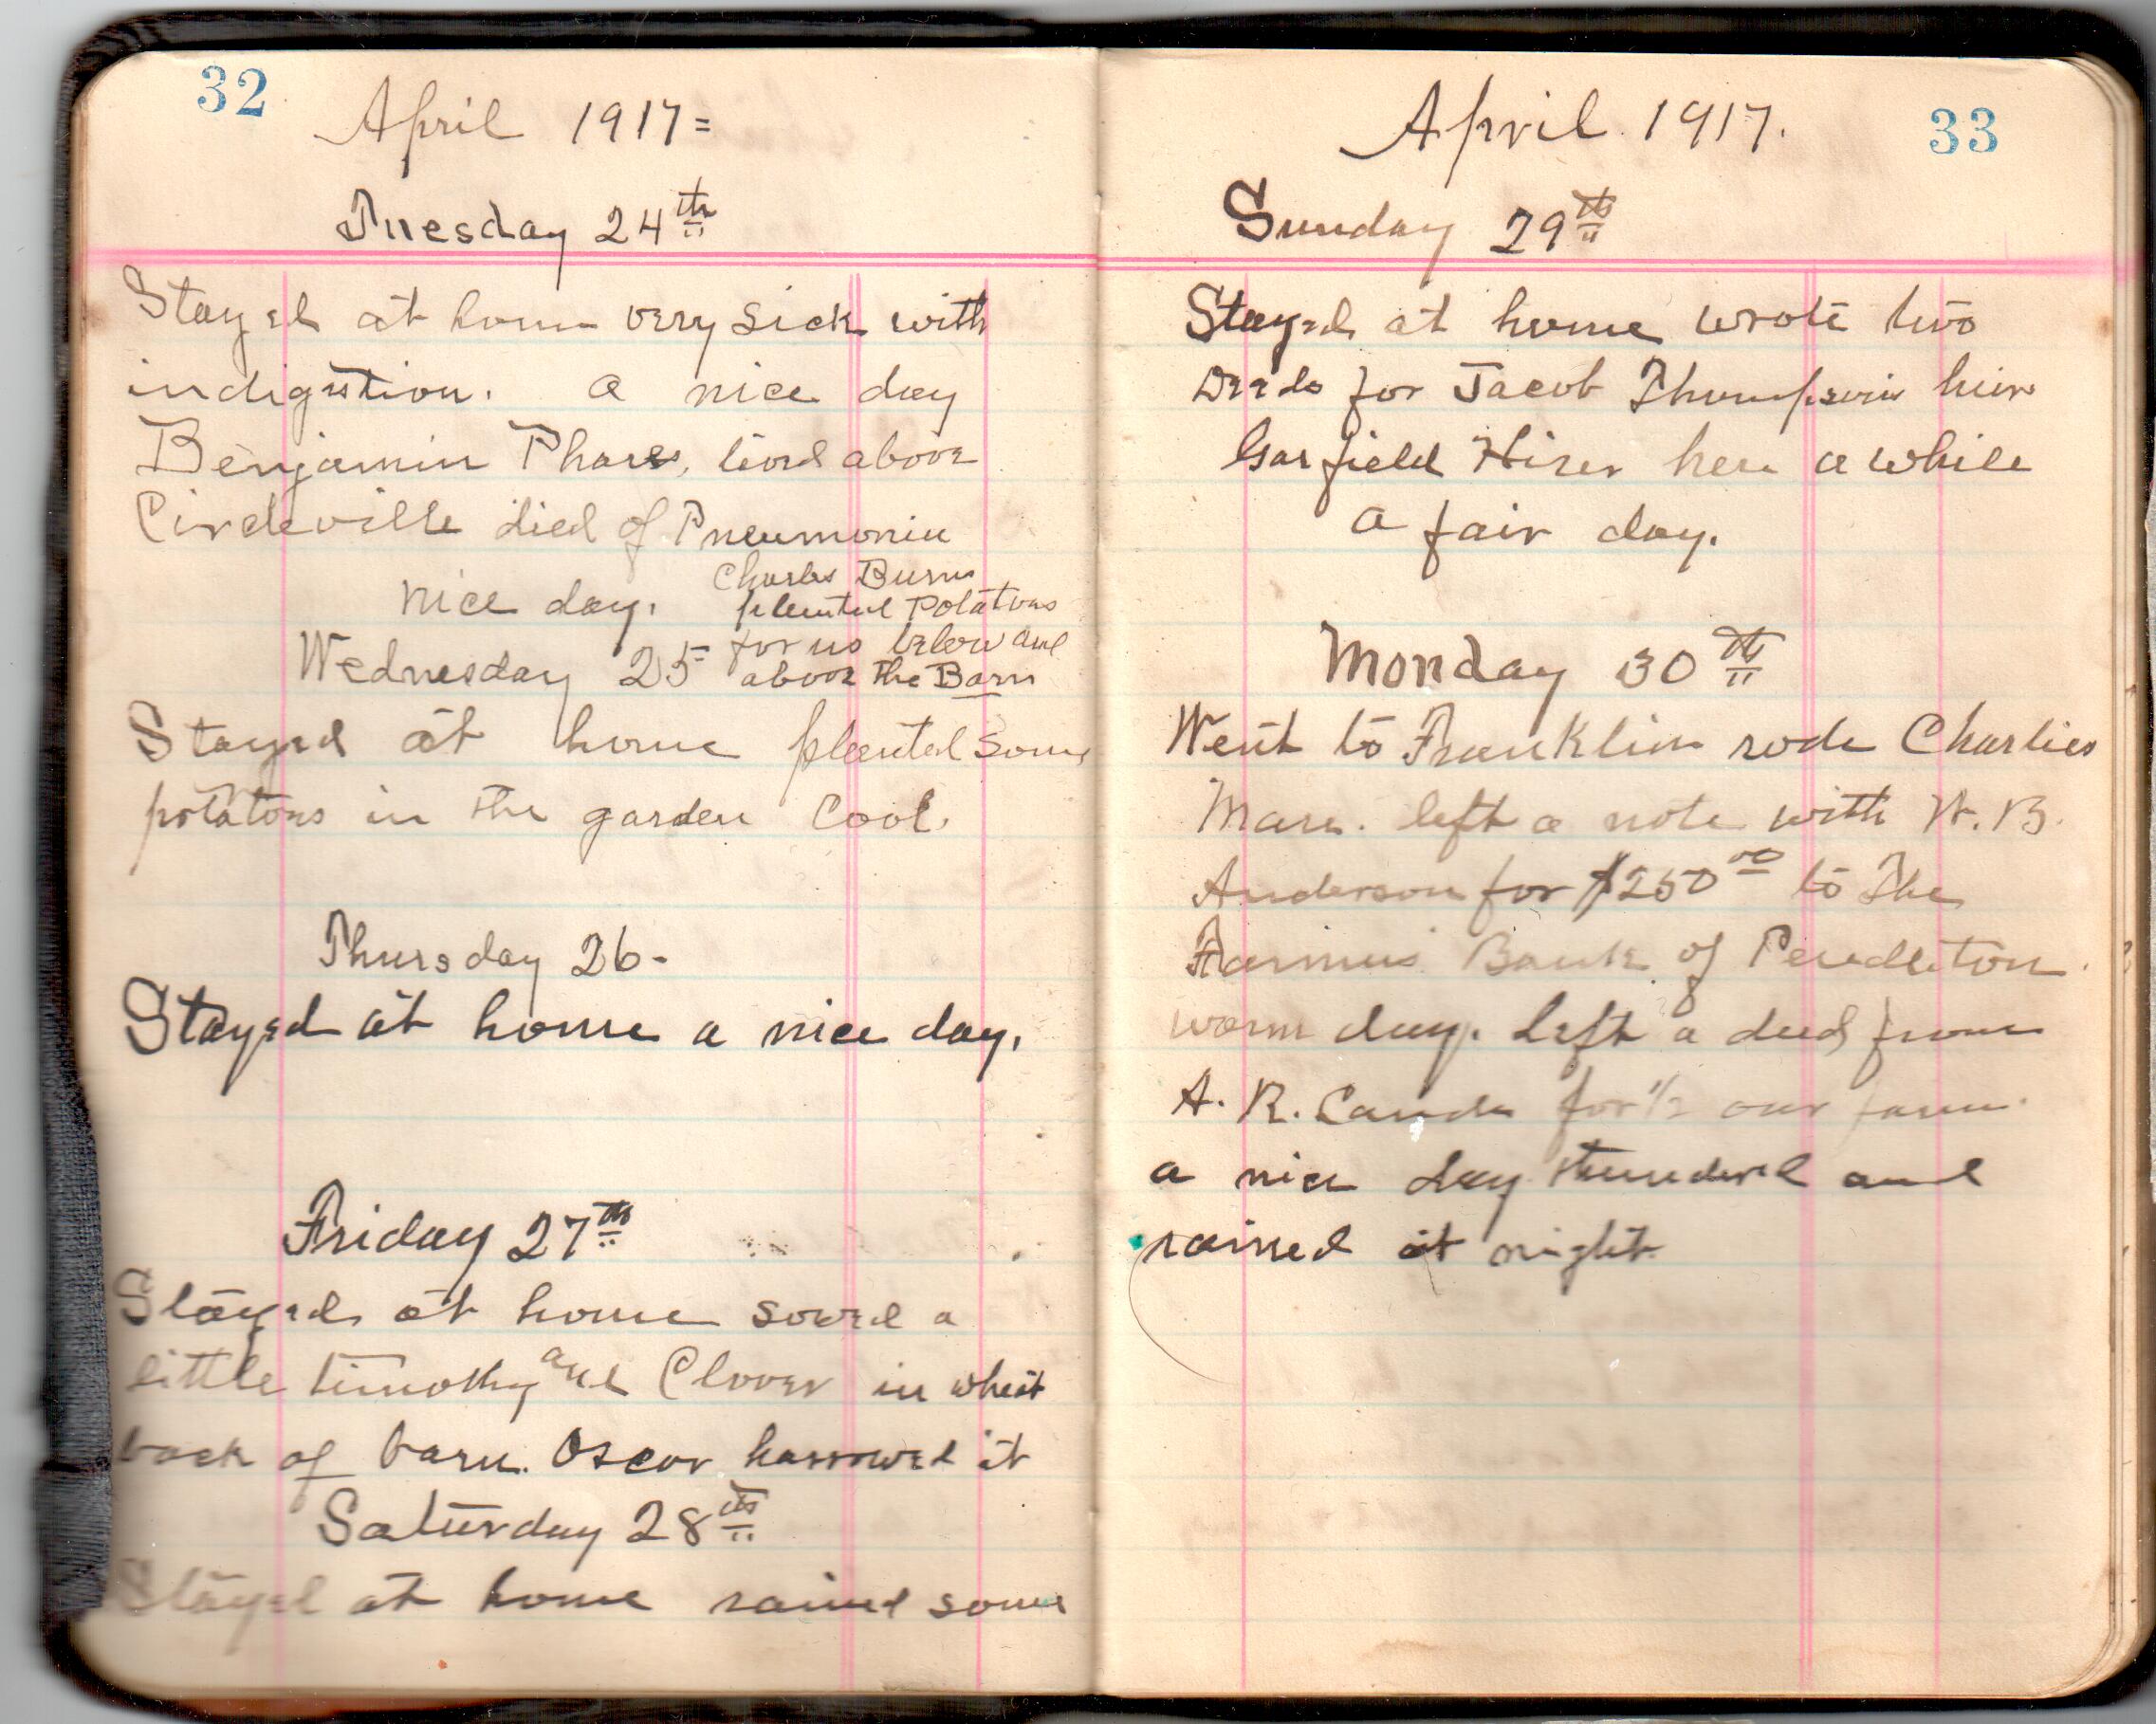 32
April 1917=
Tuesday 24th
Stayed at home very sick with
indigestion. a nice day
Benjamin Phares, lived above
Circleville died of Pneumonia
nice day.
Charles Burns
planted Potatoes
for us below and
above the Barn
Wednesday 25
Stayed at home planted some
potatoes in the garden Cool.
Thursday 26-
Stayed at home a nice day.
Friday 27th
Stayed at home sowed a
little timothy and Clover in wheat
back of barn. Oscar harrowed it
Saturday 28th
Stayed at home rained some
April 1917.
33
Sunday 29th
Stayed at home wrote two
Deeds for Jacob Thompson heirs
Garfield Hiser here a while
a fair day.
Monday 30th
Went to Franklin rode Charlies
Mare. left a note with W. B.
Anderson for $250 00 to The
Farmers Bank of Pendleton.
warm day. Left a deed from
A. R. for 1/2 our farm.
a nice day thundered and
rained at night